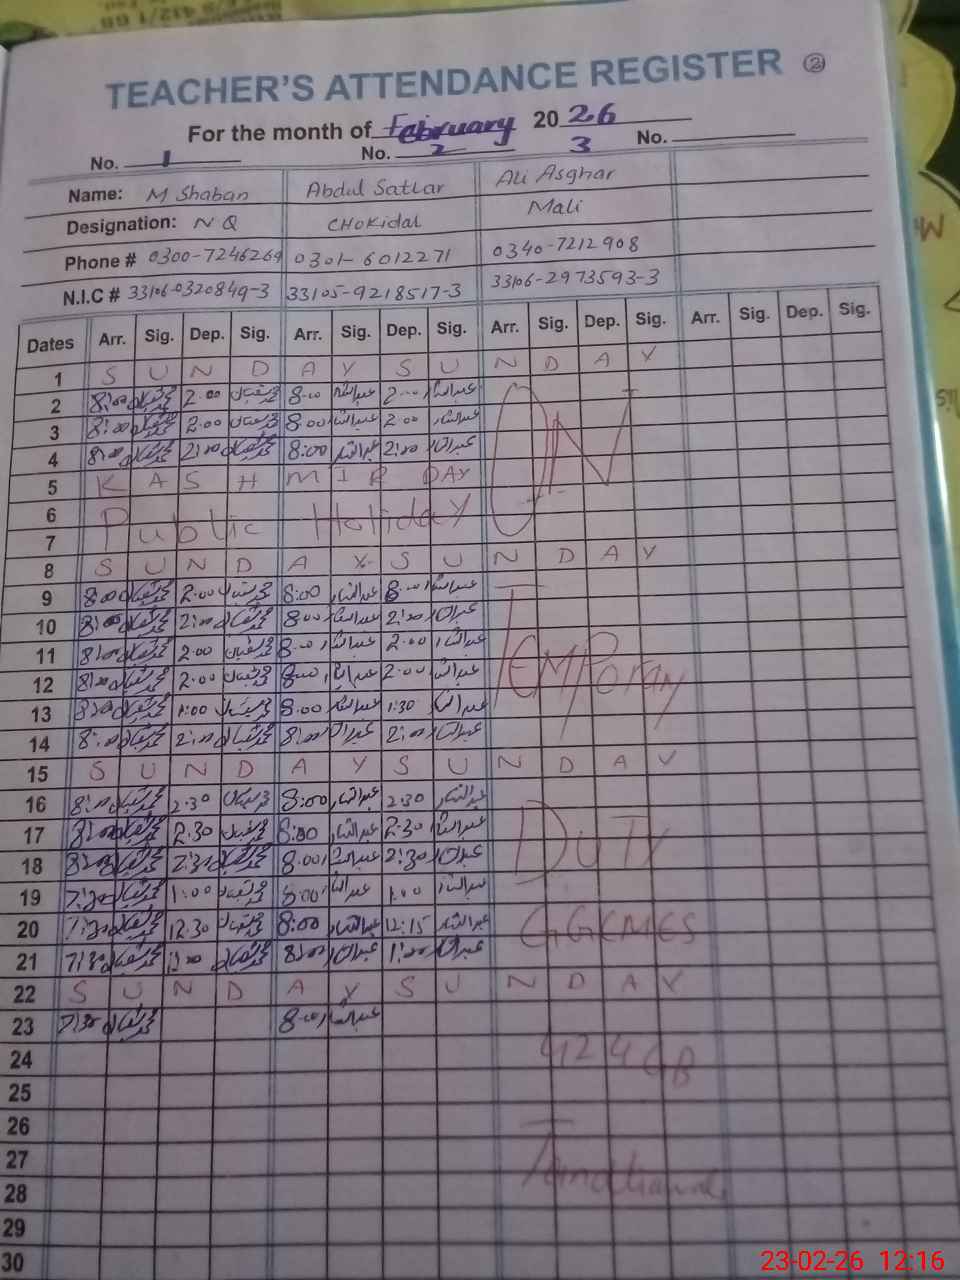 TEACHER'S ATTENDANCE REGISTER 2
For the month of February 2026
No. 1 No. 2 3 No.
Name: M Shaban Abdul Sattar Ali Asghar
Designation: N Q CHOKidal Mali
Phone # 0300-7246269 0301-6012271 0340-7212908
N.I.C # 33106-0320849-3 33105-9218517-3 33106-2973593-3
Dates Arr. Sig. Dep. Sig. Arr. Sig. Dep. Sig. Arr. Sig. Dep. Sig. Arr. Sig. Dep. Sig.
1 S U N D A Y S U N D A Y
2 8:00 2.00 8:00 عبدالستار 2:00 عبدالستار
3 8:00 2.00 8:00 عبدالستار 2:00 عبدالستار
4 8:00 2:00 8:00 عبدالستار 2:00 عبدالستار
ON
5 K A S H M I R DAY
6 Public Holiday
7
8 S U N D A Y S U N D A Y
9 8:00 2:00 8:00 عبدالستار 8:00 عبدالستار
10 8:00 2:00 8:00 عبدالستار 2:00 عبدالستار
11 8:00 2:00 8:00 عبدالستار 2:00 عبدالستار
12 8:00 2:00 8:00 عبدالستار 2:00 عبدالستار
TEMPorary
13 8:00 1:00 8:00 عبدالستار 1:30 عبدالستار
14 8:00 2:00 8:00 عبدالستار 2:00 عبدالستار
15 S U N D A Y S U N D A Y
16 8:00 2:30 8:00 عبدالستار 2:30 عبدالستار
17 8:00 2.30 8:00 عبدالستار 2:30 عبدالستار
DUTY
18 8:00 2:30 8:00 عبدالستار 2:30 عبدالستار
19 7:30 1:00 8:00 عبدالستار 1:00 عبدالستار
20 7:30 12.30 8:00 عبدالستار 12:15 عبدالستار GGCMES
21 7:30 1:00 8:00 عبدالستار 1:00 عبدالستار
22 S U N D A Y S U N D A Y
23 7:30 8:00 عبدالستار
24 424 GB
25
26
27
28
29
30
23-02-26 12:16